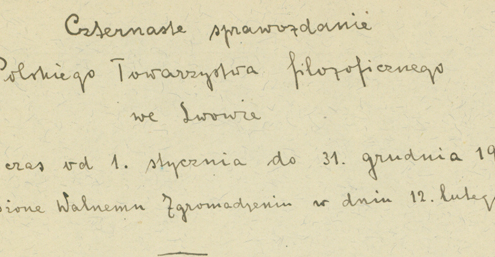 Czternaste sprawozdanie
Polskiego Towarzystwa filozoficznego
we Lwowie
czas od 1. stycznia do 31. grudnia 19
ione Walnemu Zgromadzeniu w dniu 12. luteg